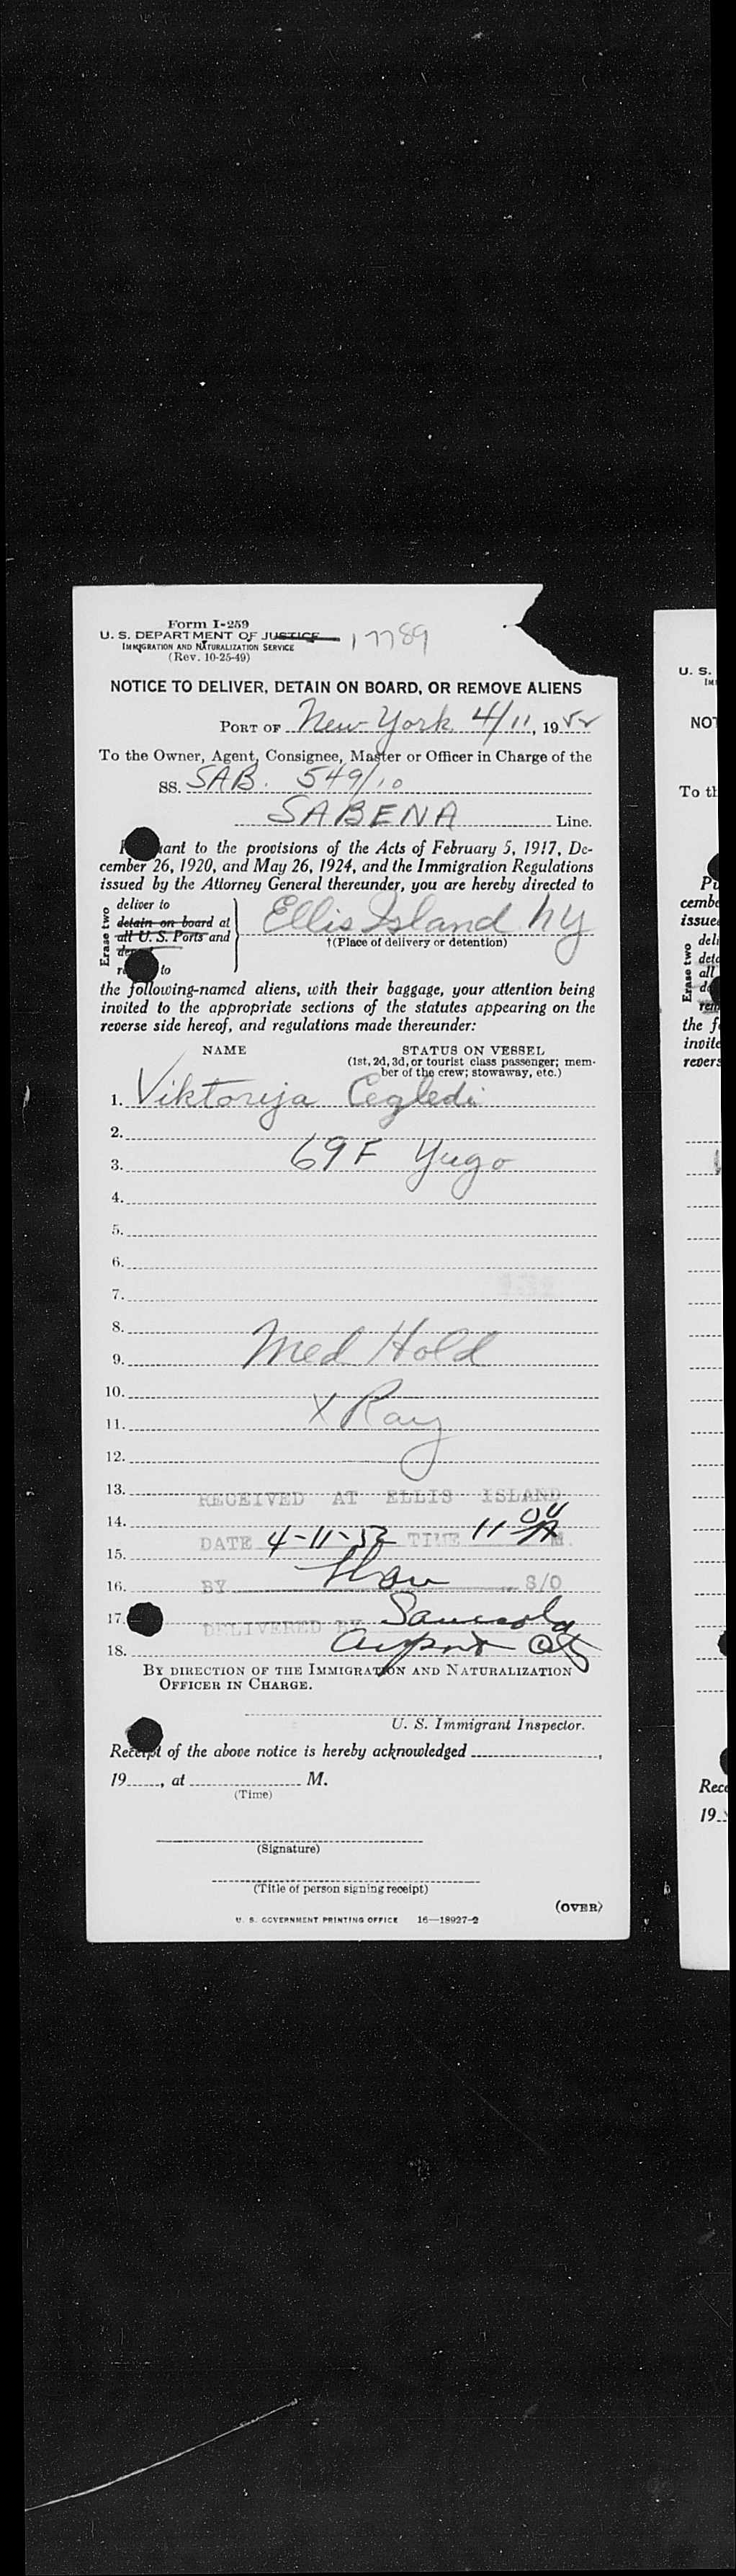 Form I-259
U. S. DEPARTMENT OF JUSTICE 17789
IMMIGRATION AND NATURALIZATION SERVICE
(Rev. 10-25-49)
NOTICE TO DELIVER, DETAIN ON BOARD, OR REMOVE ALIENS
PORT OF New York 4/11, 1952
To the Owner, Agent, Consignee, Master or Officer in Charge of the
SS. SAB. 549/10
SABENA Line.
to the provisions of the Acts of February 5, 1917, De-
cember 26, 1920, and May 26, 1924, and the Immigration Regulations
issued by the Attorney General thereunder, you are hereby directed to
Erase two
deliver to
detain on board at
all U. S. Ports and
to
Ellis Island NY
†(Place of delivery or detention)
the following-named aliens, with their baggage, your attention being
invited to the appropriate sections of the statutes appearing on the
reverse side hereof, and regulations made thereunder:
NAME STATUS ON VESSEL
(1st, 2d, 3d, or tourist class passenger; mem-
ber of the crew; stowaway, etc.)
1. Viktorija Cegledi
2.
3. 69 F Yugo
4.
5.
6.
7.
8.
9. Med Hold
10.
11. X Ray
12.
13. RECEIVED AT ELLIS ISLAND
14.
DATE 4-11-52 TIME 11 00 A M.
15.
16. BY S/O
17. DELIVERED BY
18. Airport
BY DIRECTION OF THE IMMIGRATION AND NATURALIZATION
OFFICER IN CHARGE.
U. S. Immigrant Inspector.
Receipt of the above notice is hereby acknowledged ,
19 , at M.
(Time)
(Signature)
(Title of person signing receipt)
(OVER)
U. S. GOVERNMENT PRINTING OFFICE 16—18927-2
U. S.
NOT
To th
cembe
issue
Erase two
the f
invite
revers
Rece
19